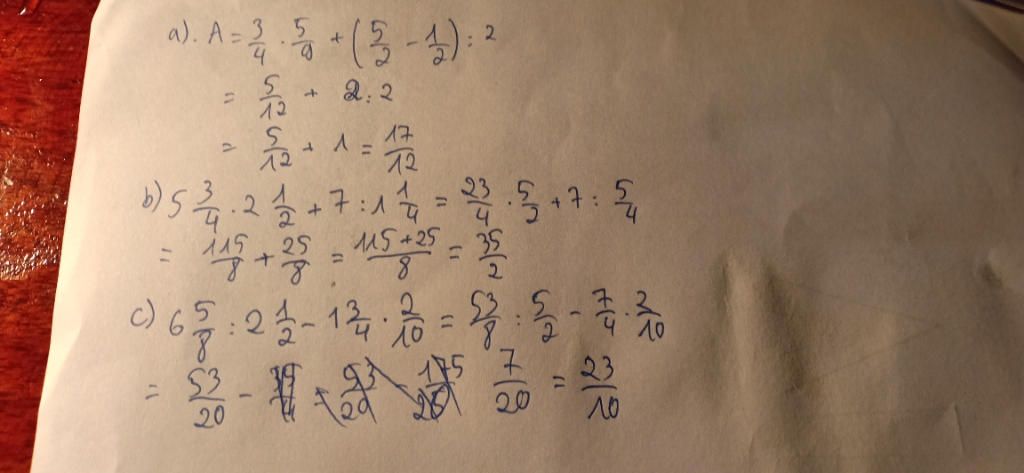 a). A = 3/4 · 5/9 + (5/2 - 1/2) : 2
= 5/12 + 2 : 2
= 5/12 + 1 = 17/12
b) 5 3/4 · 2 1/2 + 7 : 1 1/4 = 23/4 · 5/2 + 7 : 5/4
= 115/8 + 25/8 = 115+25/8 = 35/2
c) 6 5/8 : 2 1/2 - 1 3/4 · 2/10 = 53/8 : 5/2 - 7/4 · 2/10
= 53/20 - 7/20 = 23/10